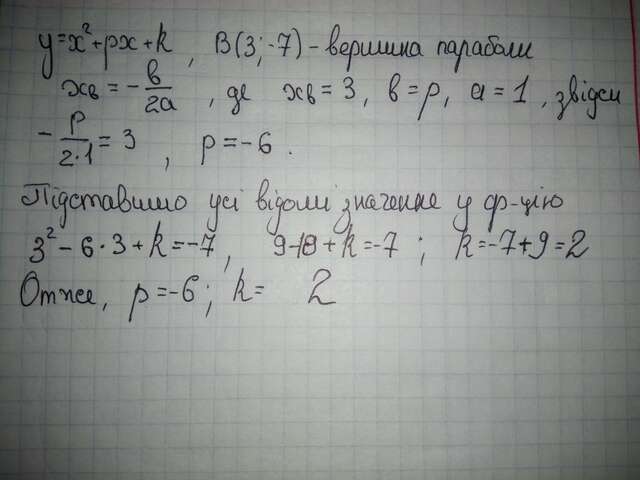 y=x²+px+k, B(3;-7) - вершина параболи
xв = -в/2a, де xв = 3, в = p, a = 1, звідси
-p/2·1 = 3, p = -6.
Підставимо усі відомі значення у ф-цію
3² - 6·3 + k = -7, 9-18 + k = -7; k = -7+9 = 2
Отже, p = -6; k = 2